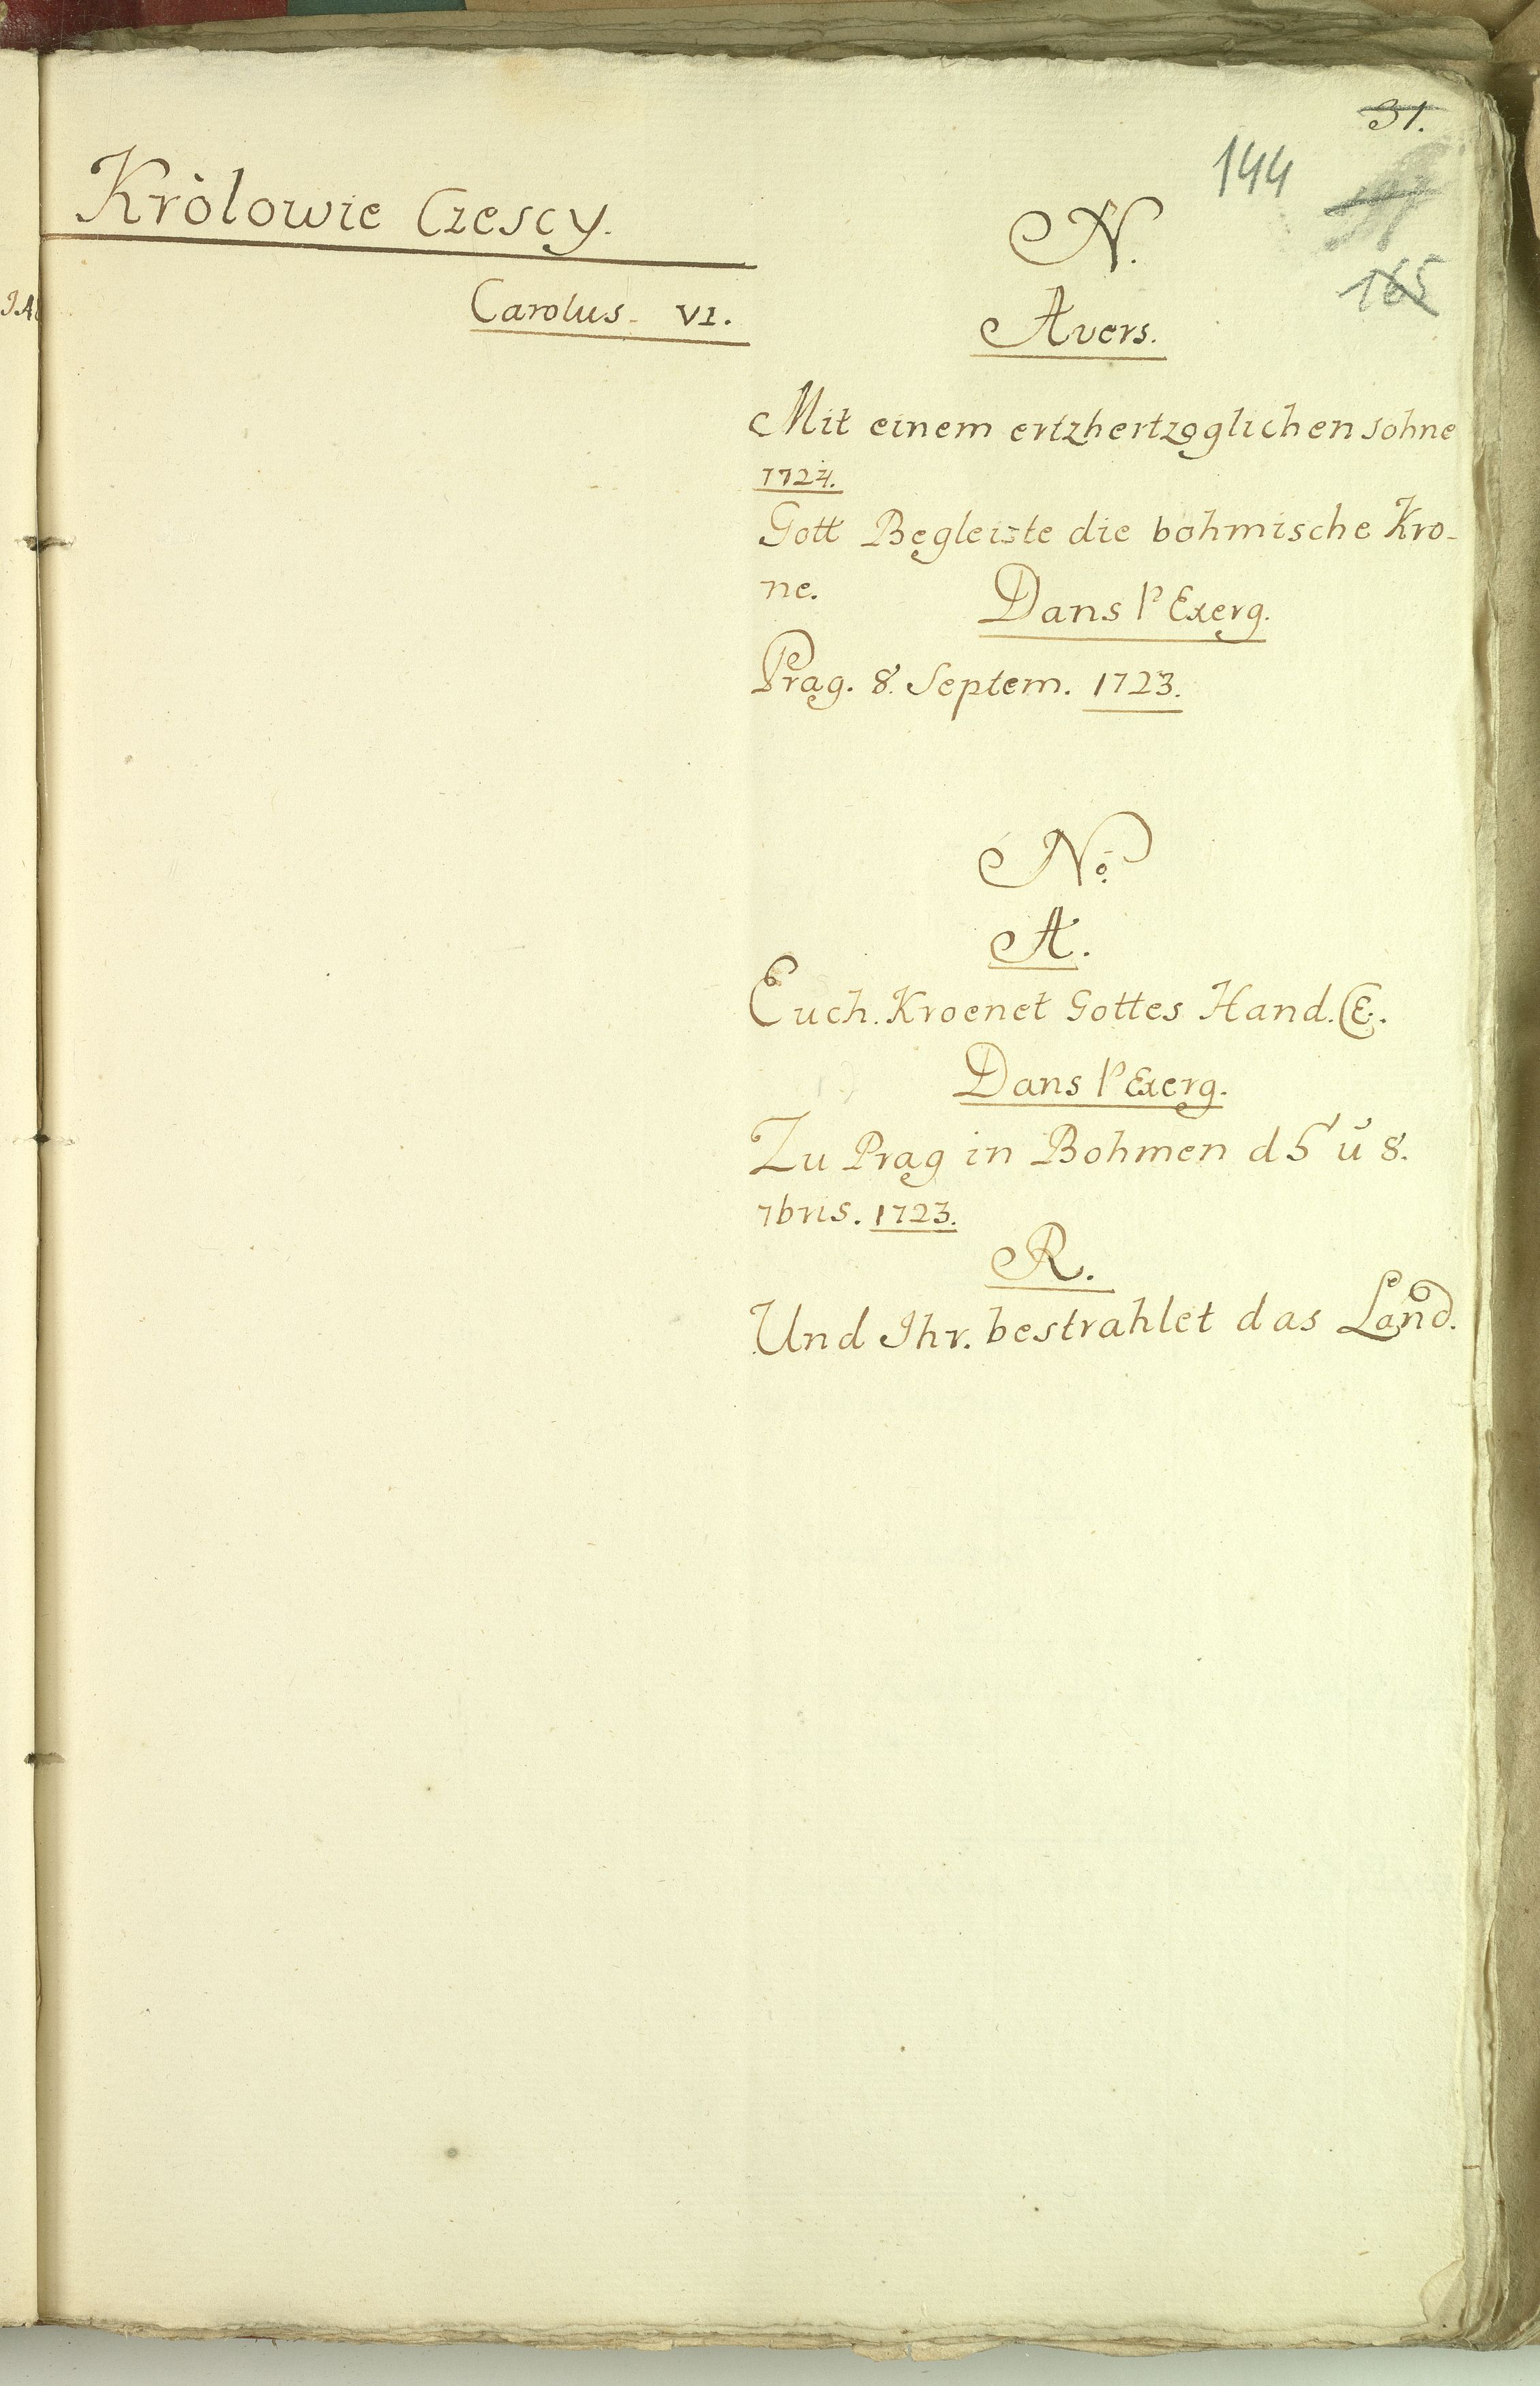 31.
144
165
Kròlowie Czescy.
Carolus. VI.
N.
Avers.
Mit einem ertzhertzoglichen sohne
1724.
Gott Begleiste die bohmische Kro-
ne.
Dans l'Exerg.
Prag. 8. Septem. 1723.
No.
A.
Euch. Kroenet Gottes Hand.
Dans l'Exerg.
Zu Prag in Bohmen d 5' ŭ 8.
7bris. 1723.
R.
Und Ihr. bestrahlet das Land.